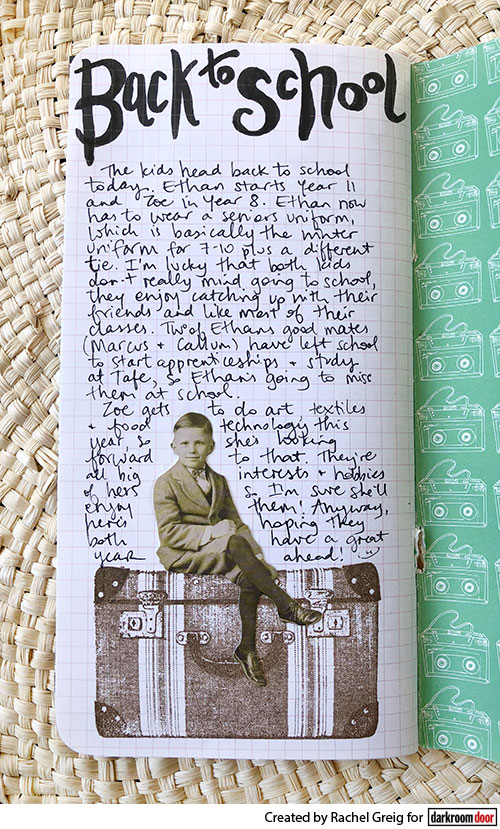 Back to School
The kids head back to school
today. Ethan starts Year 11
and Zoe in Year 8. Ethan now
has to wear a seniors uniform,
which is basically the winter
uniform for 7-10 plus a different
tie. I'm lucky that both kids
don't really mind going to school,
they enjoy catching up with their
friends and like most of their
classes. Two of Ethans good mates
(Marcus + Callum) have left school
to start apprenticeships + study
at Tafe, so Ethan's going to miss
them at school.
Zoe gets to do art, textiles
+ food technology this
year, so she's looking
forward to that. They're
all big interests + hobbies
of hers so I'm sure she'll
enjoy them! Anyway,
here's hoping they
both have a great
year ahead!
Created by Rachel Greig for darkroom door